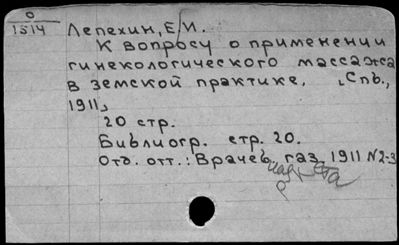 О
1514
Лепехин, Е.И.
К вопросу о применении
гинекологического массажа
в земской практике. [Спб.,
1911,]
20 стр.
Библиогр. стр. 20.
Отд. отт.: Врачеб. газ. 1911 N2-3